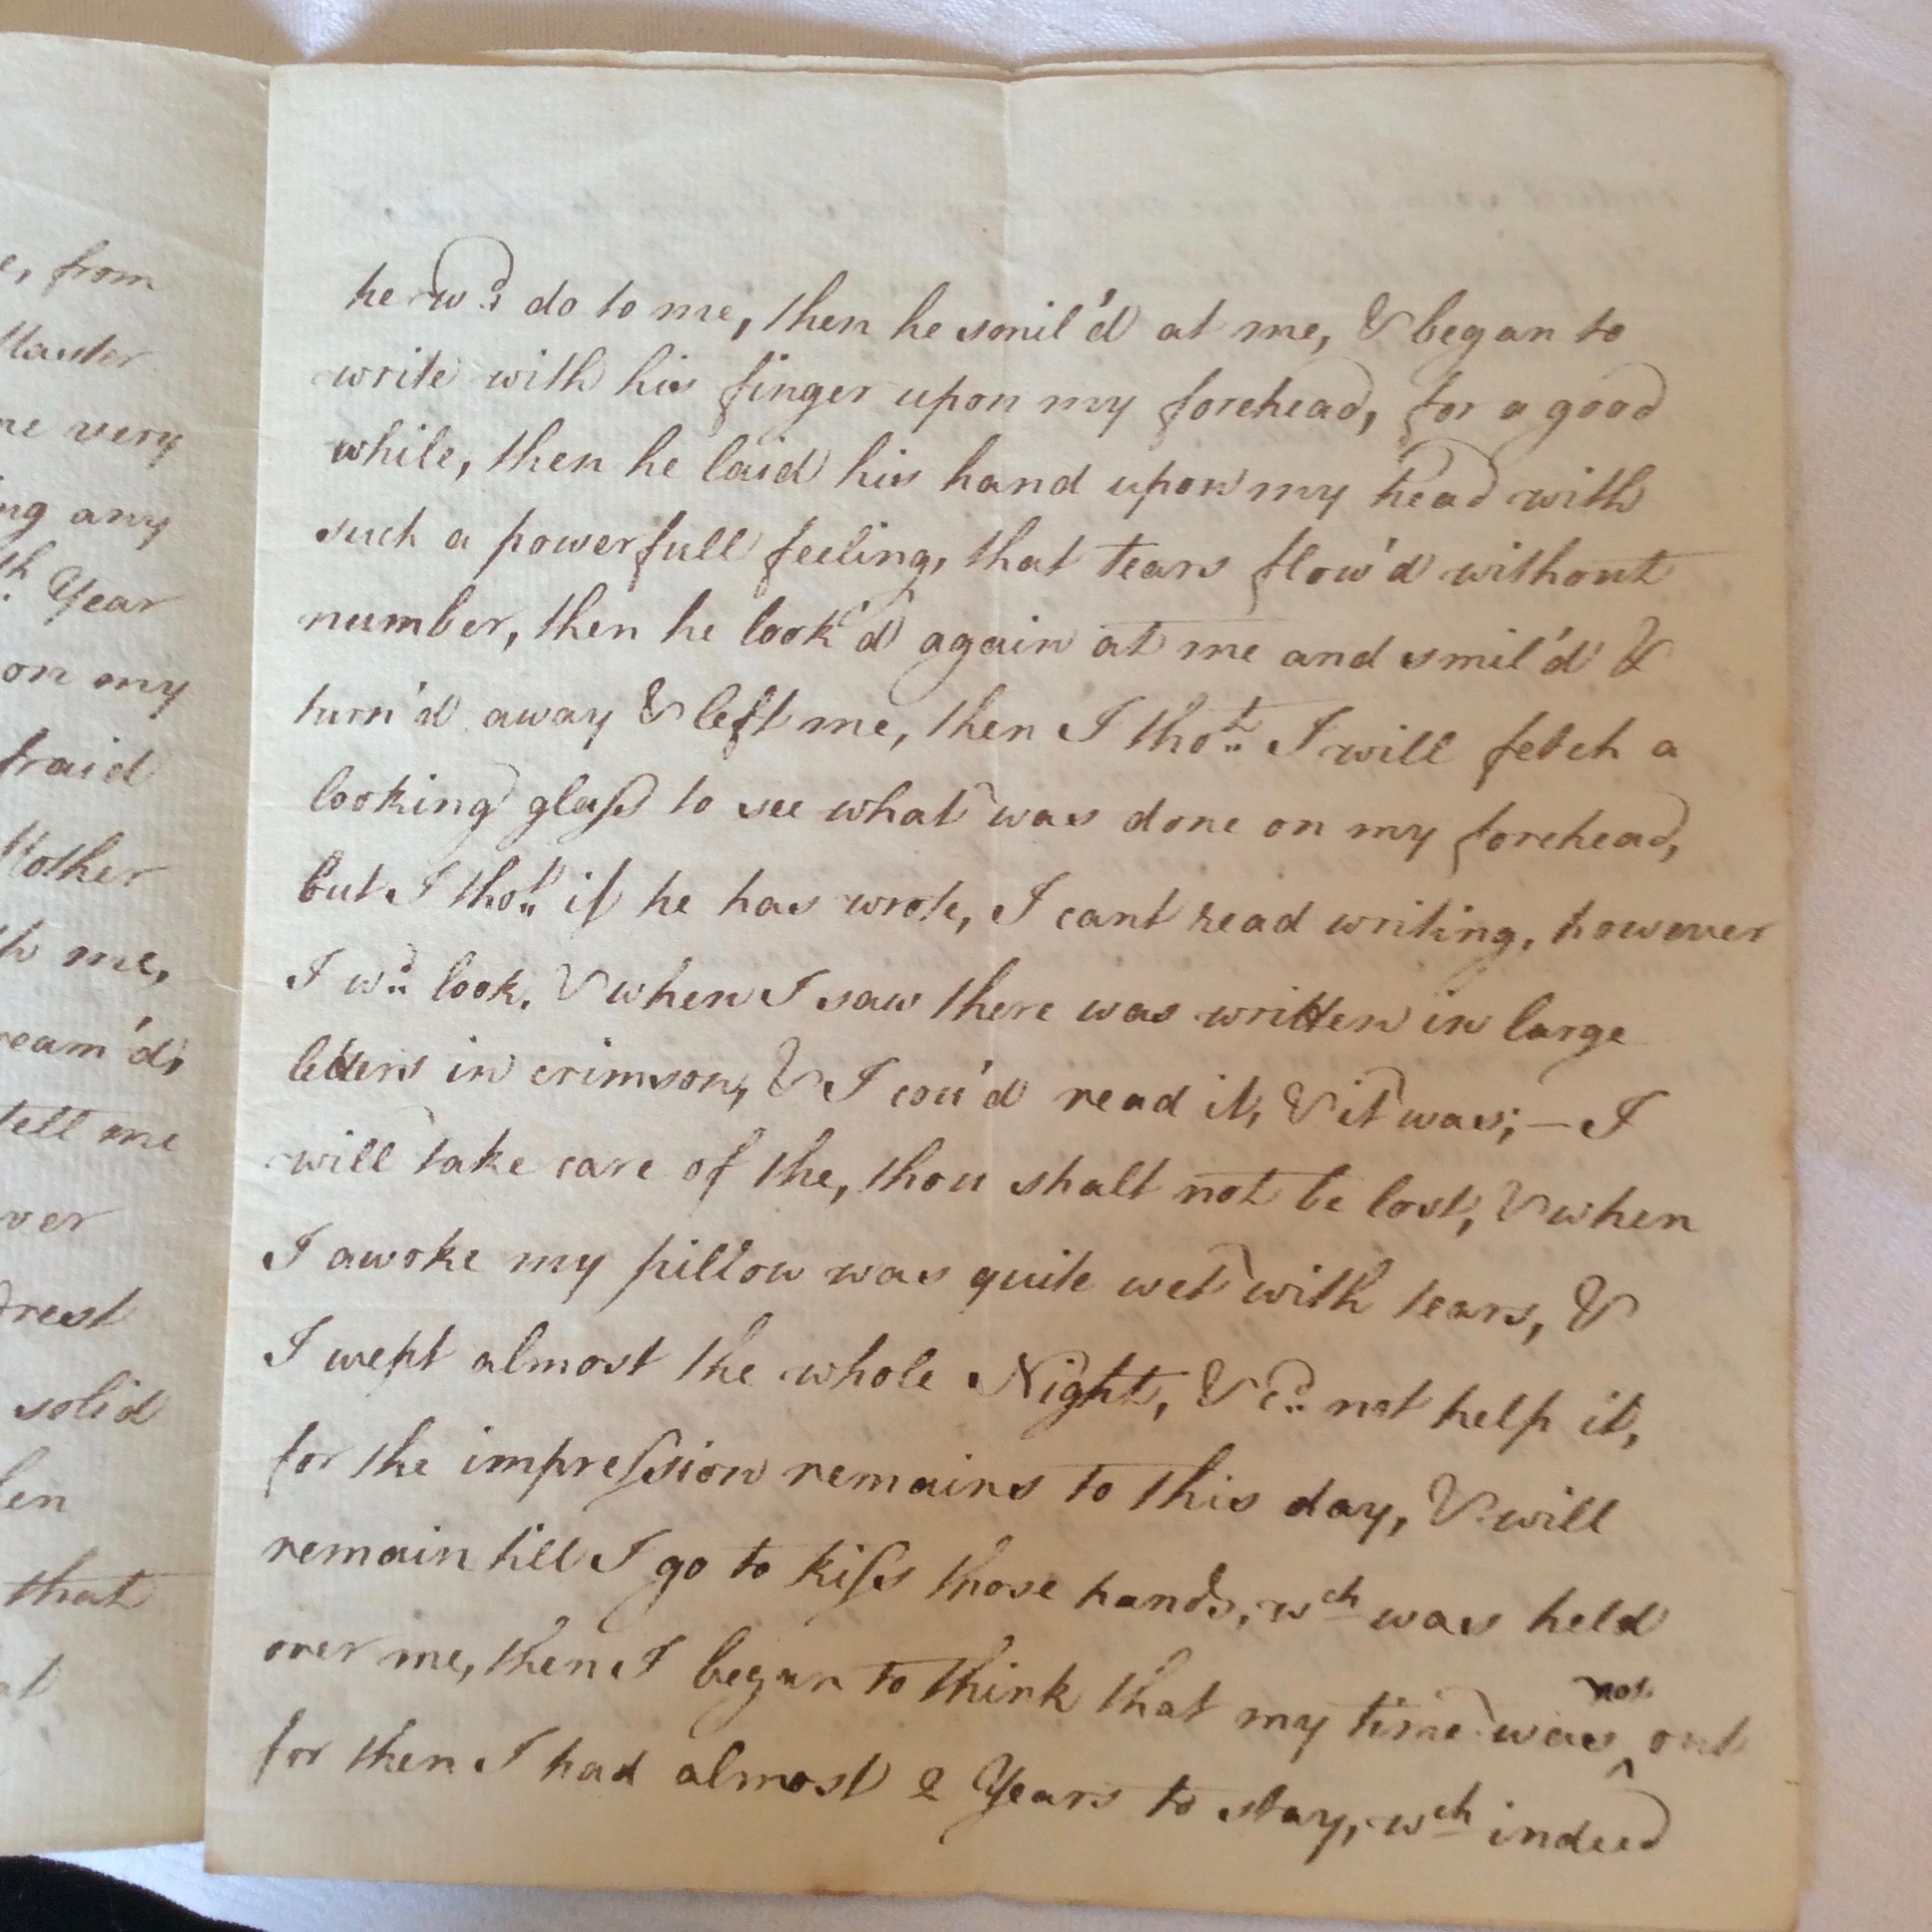 e, from
ne very
ng any
th Year
on my
fraid
Mother
th me,
ream'd,
tell me
ver
drest
solid
len
that
at
he wd. do to me, then he smil'd at me, & began to
write with his finger upon my forehead, for a good
while, then he laid his hand upon my head with
such a powerfull feeling, that tears flow'd without
number, then he look'd again at me and smil'd &
turn'd away & left me, then I thot. I will fetch a
looking glaſs to see what was done on my forehead,
but I thot. if he has wrote, I cant read writing, however
I wd. look. & when I saw there was written in large
letters in crimson, & I cou'd read it, & it was; — I
will take care of the, thou shalt not be lost, & when
I awoke my pillow was quite wet with tears, &
I wept almost the whole Night, & cd. not help it,
for the impreſsion remains to this day, & will
remain till I go to kiſs those hands, wch was held
over me, then I began to think that my time was not out
for then I had almost 2 Years to stay, wch indeed